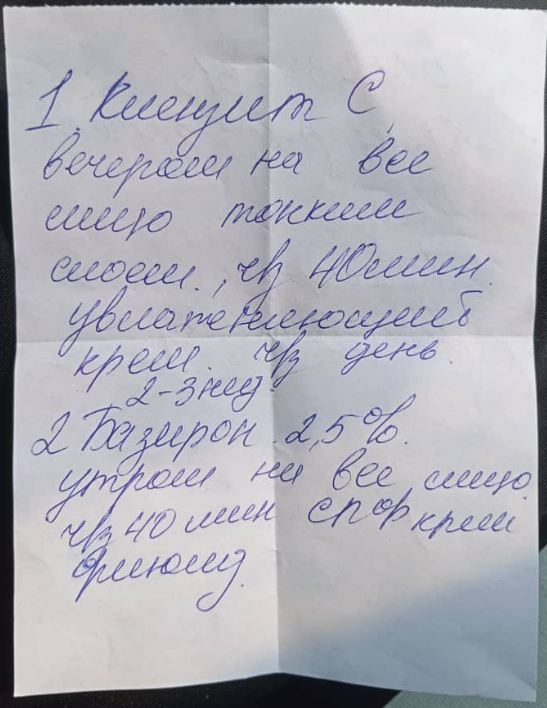 1. Кленцит С
вечером на все
лицо тонким
слоем, ч/з 40 мин.
увлажняющий
крем. ч/з день.
2-3 нед.
2 Базирон 2,5%.
утром на все лицо.
ч/з 40 мин СПФ крем
флюид.